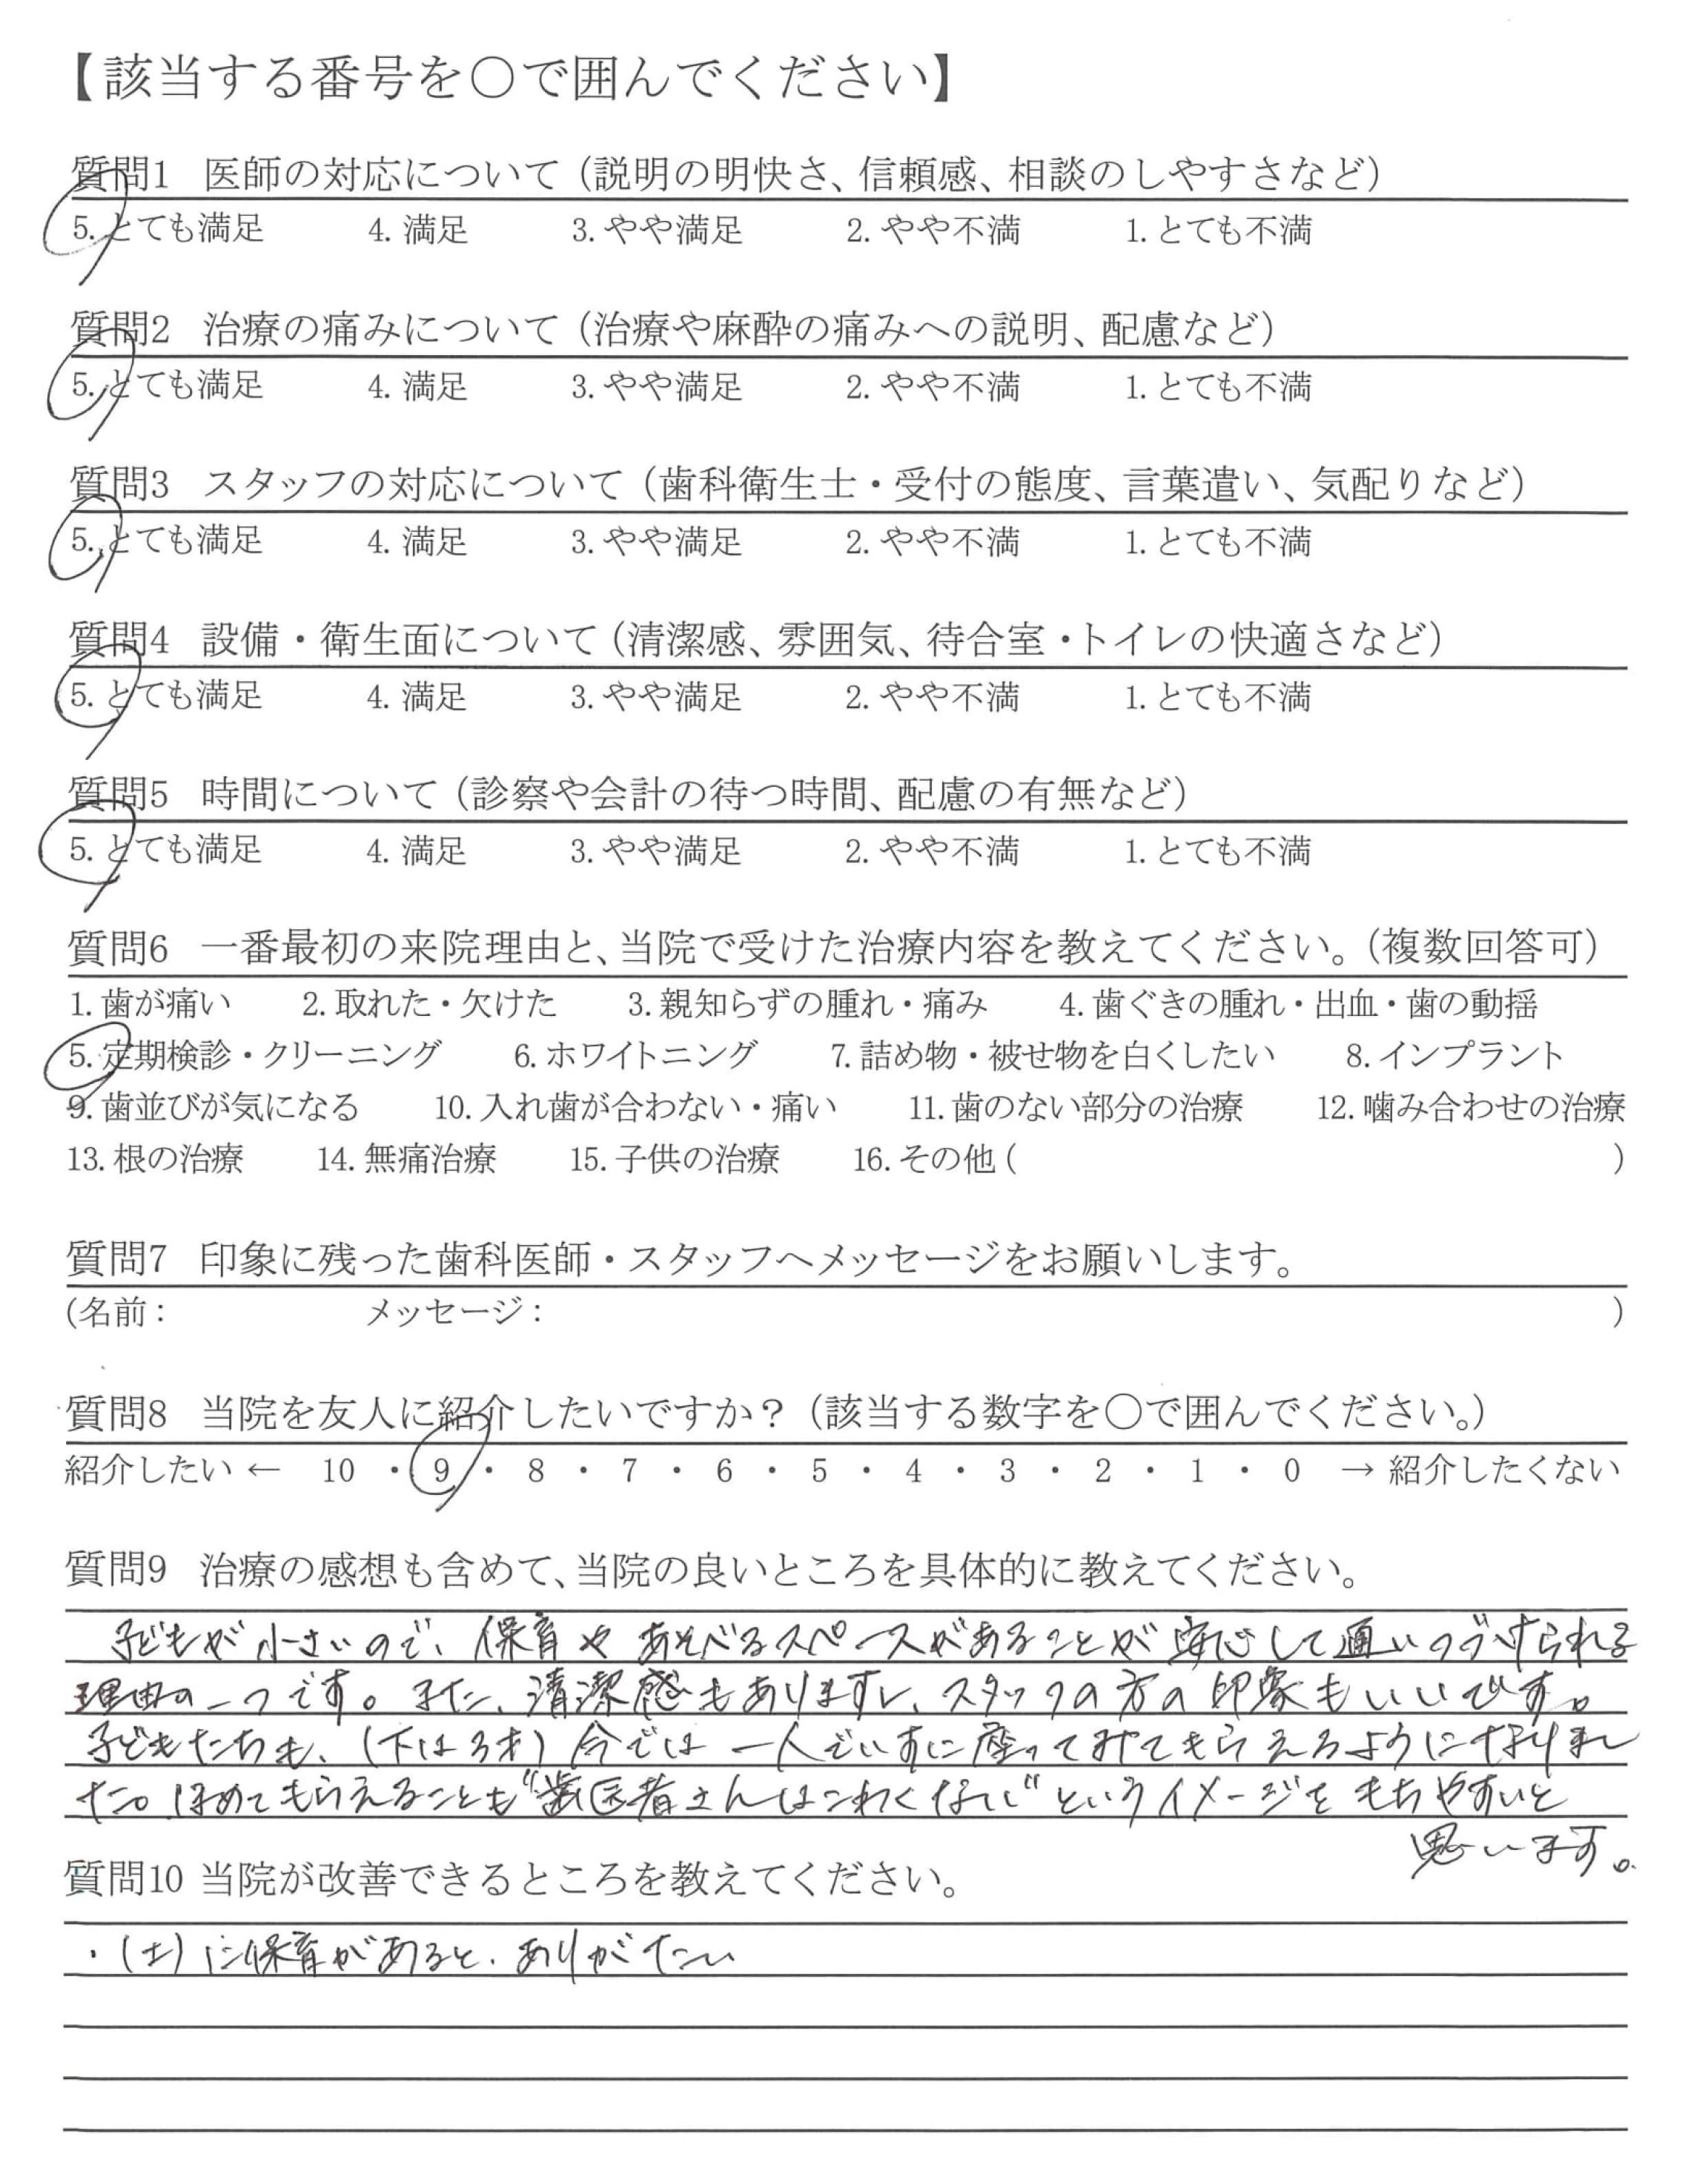 【該当する番号を〇で囲んでください】
質問1 医師の対応について（説明の明快さ、信頼感、相談のしやすさなど）
5.とても満足 4.満足 3.やや満足 2.やや不満 1.とても不満
質問2 治療の痛みについて（治療や麻酔の痛みへの説明、配慮など）
5.とても満足 4.満足 3.やや満足 2.やや不満 1.とても不満
質問3 スタッフの対応について（歯科衛生士・受付の態度、言葉遣い、気配りなど）
5.とても満足 4.満足 3.やや満足 2.やや不満 1.とても不満
質問4 設備・衛生面について（清潔感、雰囲気、待合室・トイレの快適さなど）
5.とても満足 4.満足 3.やや満足 2.やや不満 1.とても不満
質問5 時間について（診察や会計の待つ時間、配慮の有無など）
5.とても満足 4.満足 3.やや満足 2.やや不満 1.とても不満
質問6 一番最初の来院理由と、当院で受けた治療内容を教えてください。（複数回答可）
1.歯が痛い 2.取れた・欠けた 3.親知らずの腫れ・痛み 4.歯ぐきの腫れ・出血・歯の動揺
5.定期検診・クリーニング 6.ホワイトニング 7.詰め物・被せ物を白くしたい 8.インプラント
9.歯並びが気になる 10.入れ歯が合わない・痛い 11.歯のない部分の治療 12.噛み合わせの治療
13.根の治療 14.無痛治療 15.子供の治療 16.その他（ ）
質問7 印象に残った歯科医師・スタッフへメッセージをお願いします。
（名前： メッセージ： ）
質問8 当院を友人に紹介したいですか？（該当する数字を〇で囲んでください。）
紹介したい ← 10 ・ 9 ・ 8 ・ 7 ・ 6 ・ 5 ・ 4 ・ 3 ・ 2 ・ 1 ・ 0 → 紹介したくない
質問9 治療の感想も含めて、当院の良いところを具体的に教えてください。
子どもが小さいので、保育やあそべるスペースがあることが安心して通いつづけられる
理由の一つです。また、清潔感もありますし、スタッフの方の印象もいいです。
子どもたちも、（下は3才）今では一人でいすに座ってみてもらえるようになりまし
た。ほめてもらえることも“歯医者さんはこわくない”というイメージをもちやすいと
思います。
質問10 当院が改善できるところを教えてください。
・（土）に保育があると、ありがたい